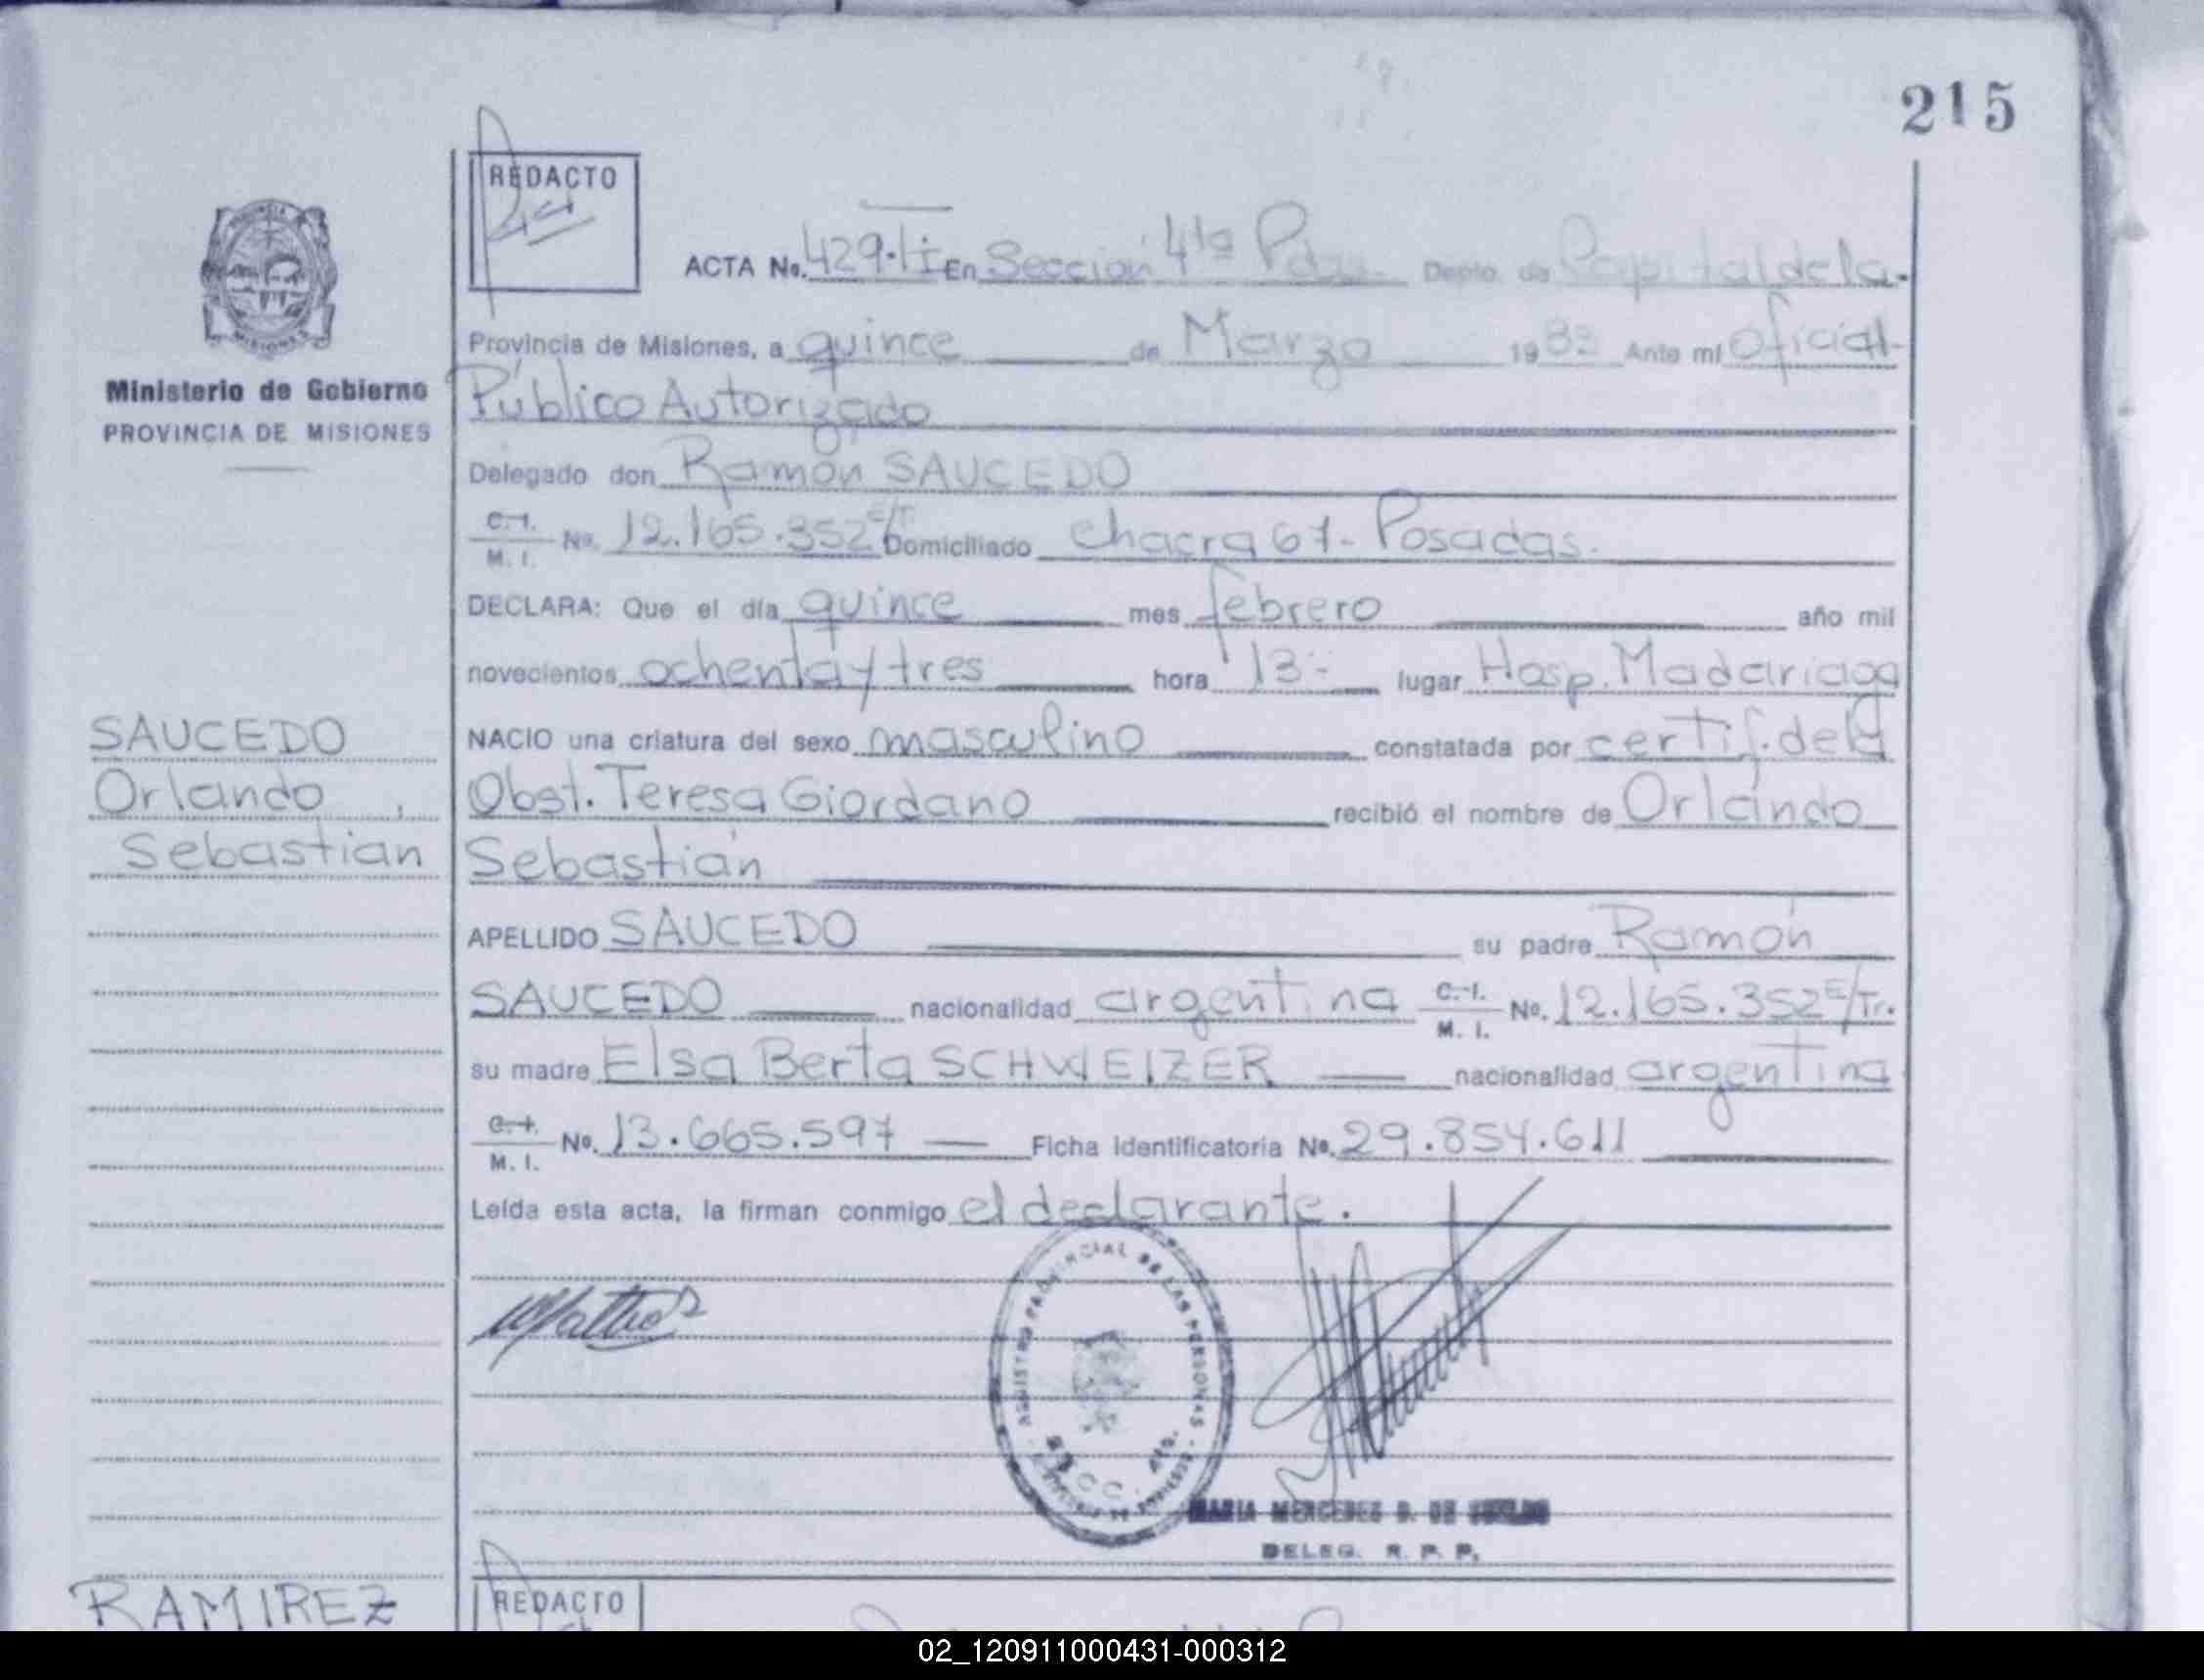 215
REDACTO
ACTA No. 429·I En Sección 4ta Pdas. Depto. de Capital de la
Provincia de Misiones, a quince de Marzo 1983 Ante mí Oficial
Público Autorizado
Delegado don Ramón SAUCEDO
C.I. M.I. No. 12.165.352 E/T Domiciliado Chacra 67- Posadas.
DECLARA: Que el día quince mes febrero año mil
novecientos ochenta y tres hora 13- lugar Hosp. Madariaga
NACIO una criatura del sexo masculino constatada por certif. de la
Obst. Teresa Giordano recibió el nombre de Orlando
Sebastián
APELLIDO SAUCEDO su padre Ramón
SAUCEDO nacionalidad argentina C.I. M.I. No. 12.165.352 E/Tr.
su madre Elsa Berta SCHWEIZER nacionalidad argentina
C.I. M.I. No. 13.665.597 Ficha Identificatoria No. 29.854.611
Leída esta acta, la firman conmigo el declarante.
Ministerio de Gobierno
PROVINCIA DE MISIONES
SAUCEDO
Orlando
Sebastian
REGISTRO PROVINCIAL DE LAS PERSONAS
MARIA MERCEDES B. DE
DELEG. R. P. P.
RAMIREZ
REDACTO
02_120911000431-000312